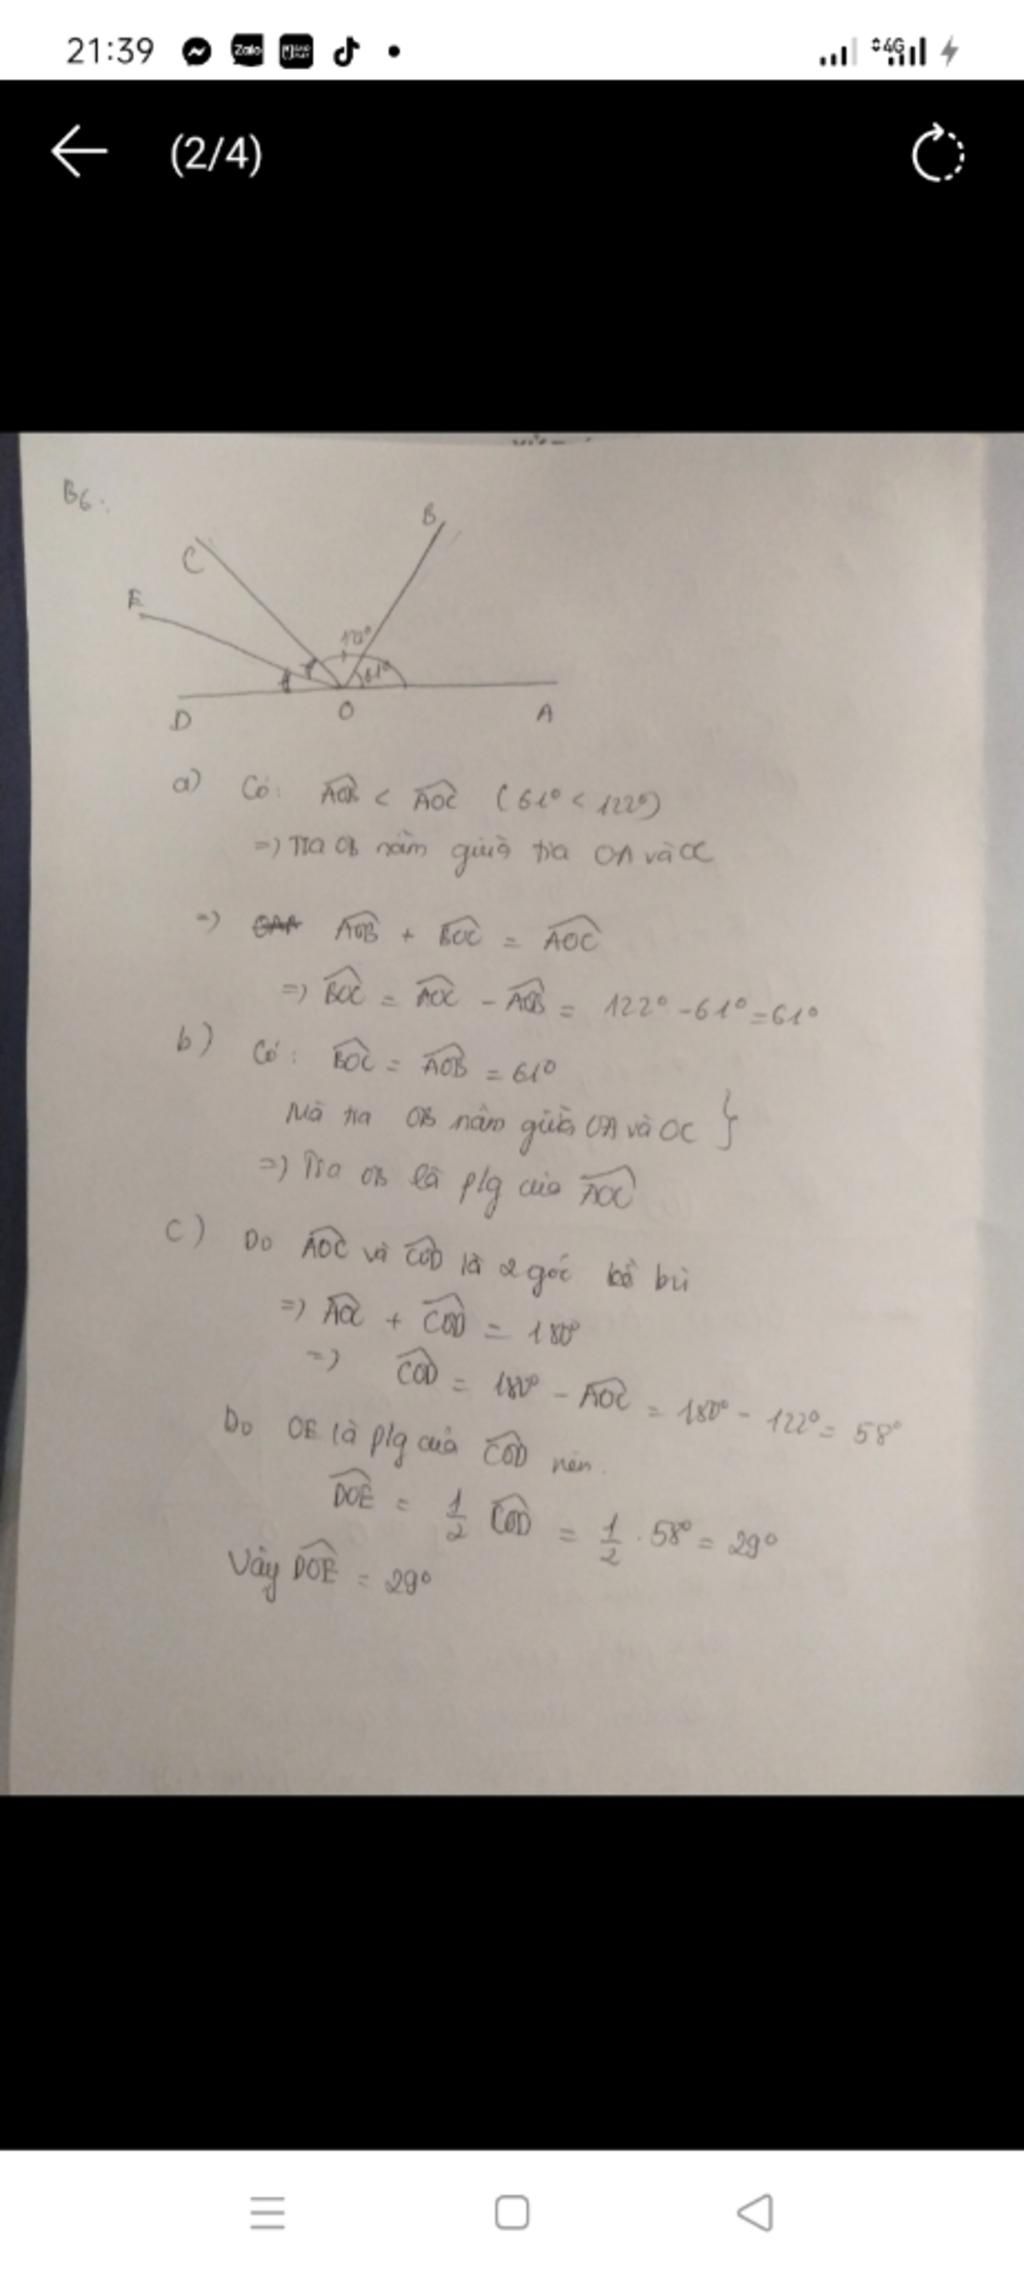 21:39 Zalo 4G
(2/4)
B6.
B
C
E
122°
61°
D O A
a) Có: AOB < AOC (61° < 122°)
=> Tia OB nằm giữa tia OA và OC
=> AOB + BOC = AOC
=> BOC = AOC - AOB = 122° - 61° = 61°
b) Có: BOC = AOB = 61°
Mà tia OB nằm giữa OA và OC }
=> Tia OB là p/g của AOC
c) Do AOC và COD là 2 góc kề bù
=> AOC + COD = 180°
=> COD = 180° - AOC = 180° - 122° = 58°
Do OE là p/g của COD nên.
DOE = 1/2 COD = 1/2 . 58° = 29°
Vậy DOE = 29°